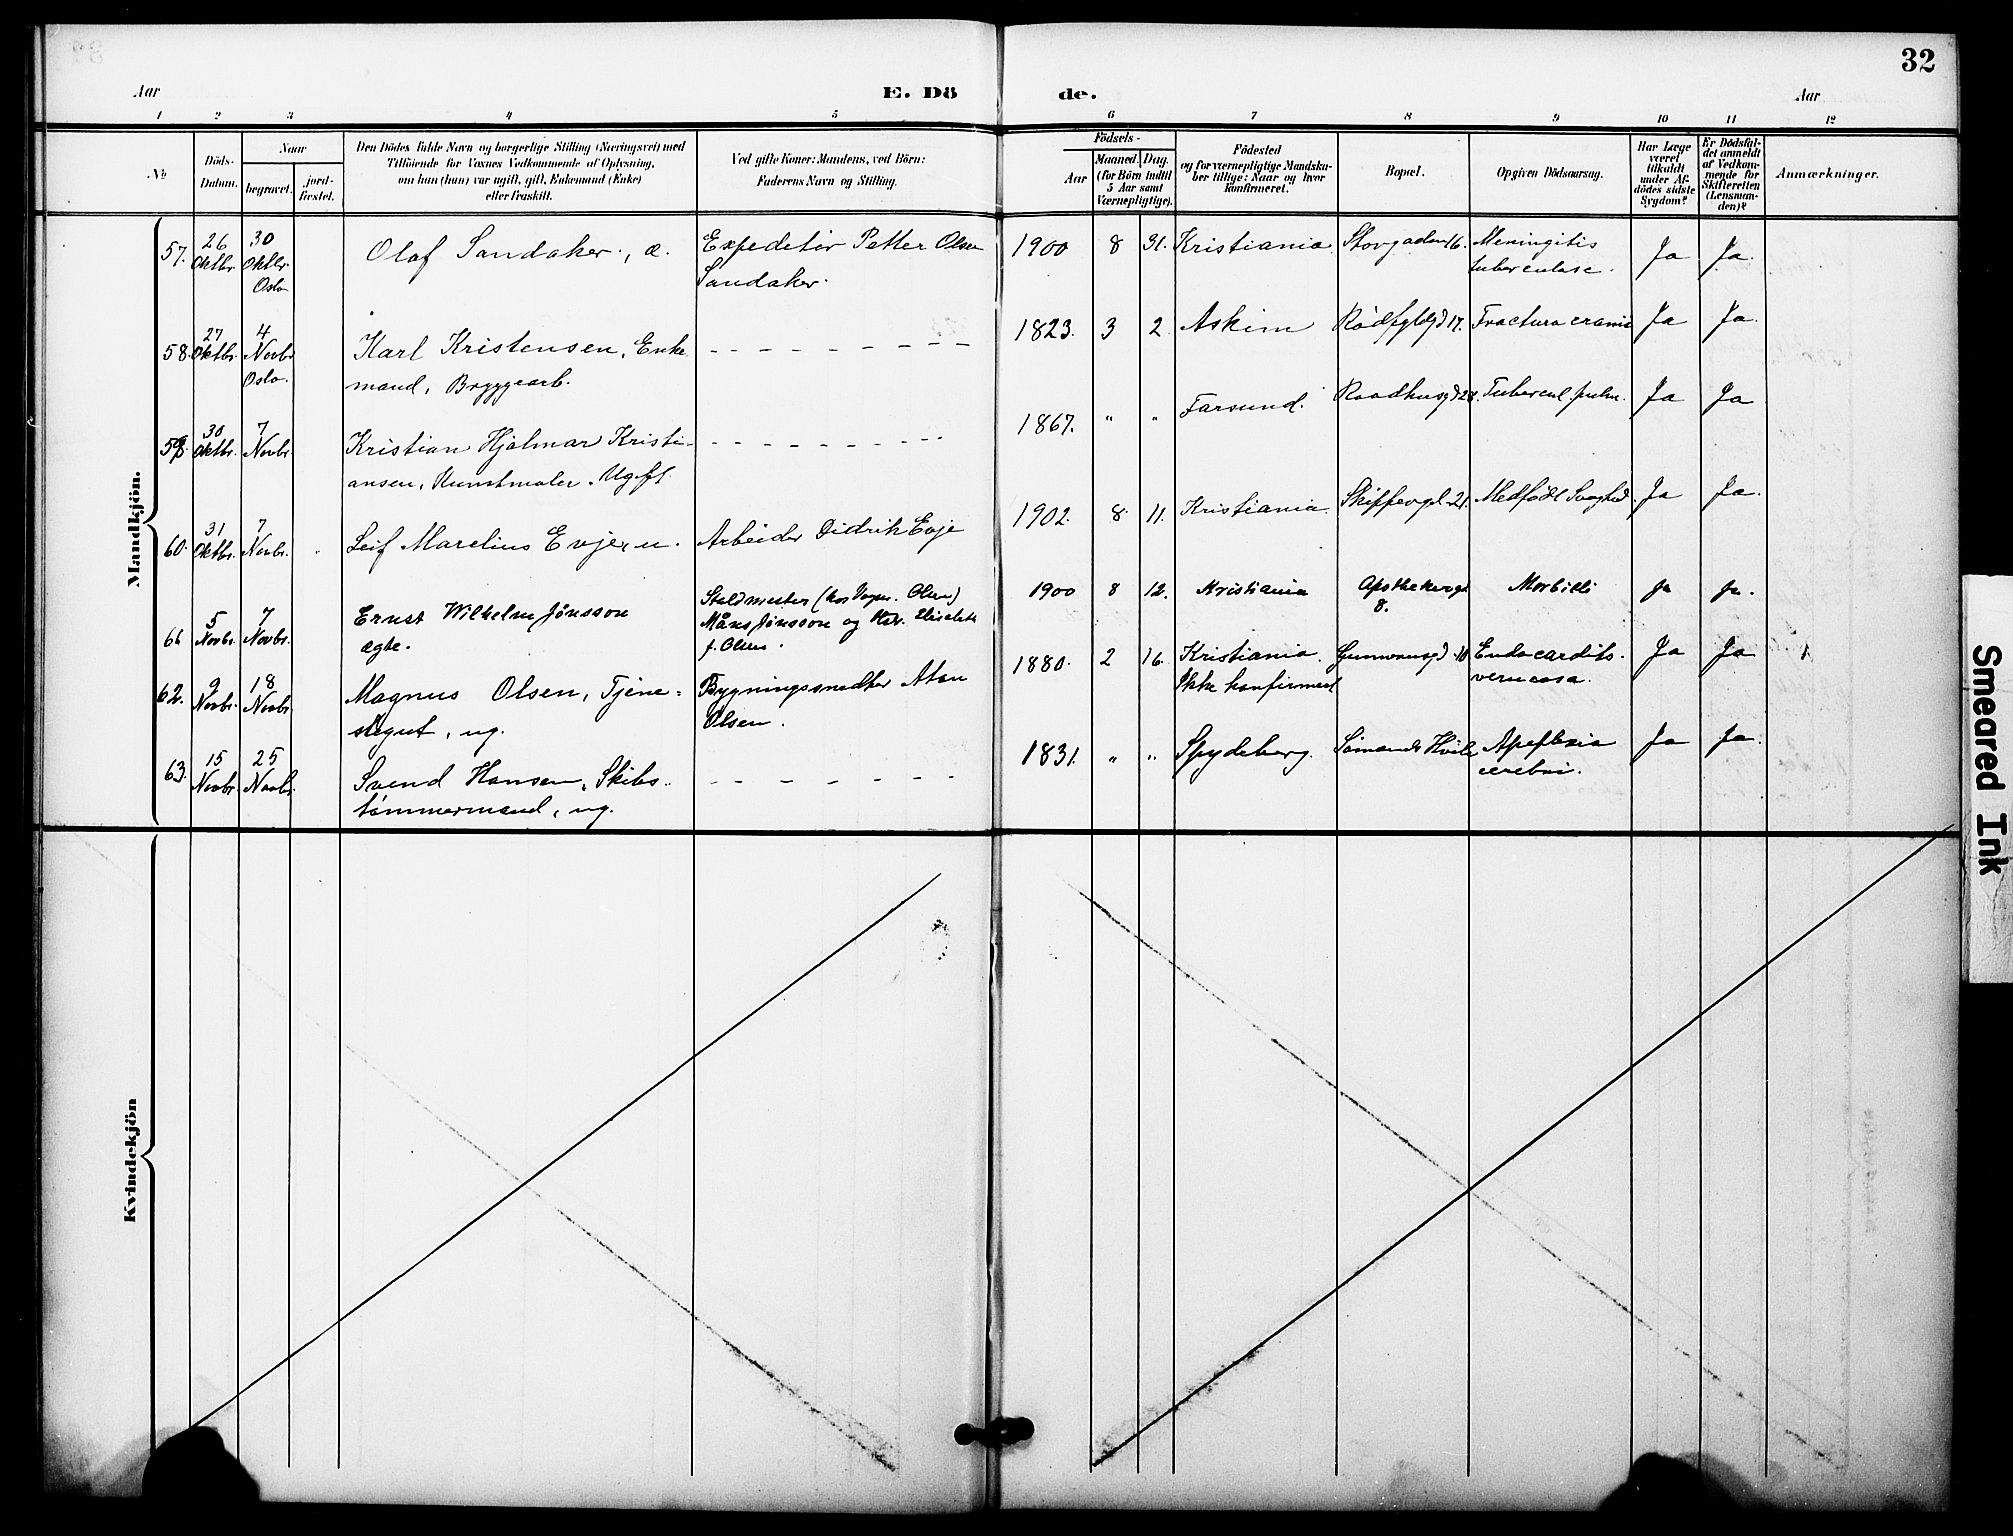 32
Aar
E. Dö
de.
Aar
1 2 3 4 5 6 7 8 9 10 11 12
No
Döds-
Datum.
Naar
begravet.
jord-
fæstet.
Den Dödes fulde Navn og borgerlige Stilling (Næringsvei) med
Tilföiende for Voxnes Vedkommende af Oplysning,
om han (hun) var ugift, gift, Enkemand (Enke)
eller fraskilt.
Ved gifte Koner: Mandens, ved Börn:
Faderens Navn og Stilling.
Födsels-
Aar
Maaned. Dag.
(for Börn indtil
5 Aar samt
Værnepligtige).
Födested
og for værnepligtige Mandska-
ber tillige: Naar og hvor
konfirmeret.
Bopæl.
Opgiven Dödsaarsag.
Har Læge
været
tilkaldt
under Af-
dödes sidste
Sygdom?
Er Dödsfal-
det anmeldt
af Vedkom-
mende for
Skifteretten
(Lensman-
den)?
Anmærkninger.
Mandkjön.
57.
26
Oktbr.
30
Oktbr.
Oslo
Olaf Sandaker, æ.
Expeditör Petter Olsen
Sandaker.
1900 8 31. Kristiania
Storgaden 16.
Meningitis
tuberculose.
Ja Ja.
58.
27
Oktbr.
4
Novbr
Oslo.
Karl Kristensen, Enke
mand, Bryggearb.
1823. 3 2. Askim
Rödfyldgd 17.
Fractura cranii
Ja Ja.
59.
30
Oktbr.
7
Novbr.
Kristian Hjalmar Kristi-
ansen, Kunstmaler. Ugift
1867. " " Farsund.
Raadhusgd 28.
Tubercul. pulm.
Ja Ja
60.
31
Oktbr.
7
Novbr.
Leif Marelius Evje, u.
Arbeider Didrik Evje
1902. 8. 11. Kristiania.
Skippergd. 21.
Medfödt Svaghed.
Ja Ja.
61
5
Novbr.
7
Novbr.
Ernst Wilhelm Jönsson
ægte.
Staldmester (hos Vogn. Olsen)
Måns Jönsson og Elisabeth
f. Olsen.
1900 8 12. Kristiania
Apothekergd.
8.
Morbilli
Ja Ja.
62.
9
Novbr.
18
Novbr.
Magnus Olsen, Tjene=
stegut, ug.
Bygningssnedker Aton
Olsen.
1880. 2 16. Kristiania.
Ikke konfirmeret
10
Endocardits.
verucosa.
Ja Ja
63.
15
Novbr.
25
Novbr.
Svend Hansen, Skibs-
tömmermand, ug.
1831. " " Spydeberg.
Sömands Hvile
Apoplexia
cerebri.
Ja Ja.
Kvindekjön
Smeared Ink